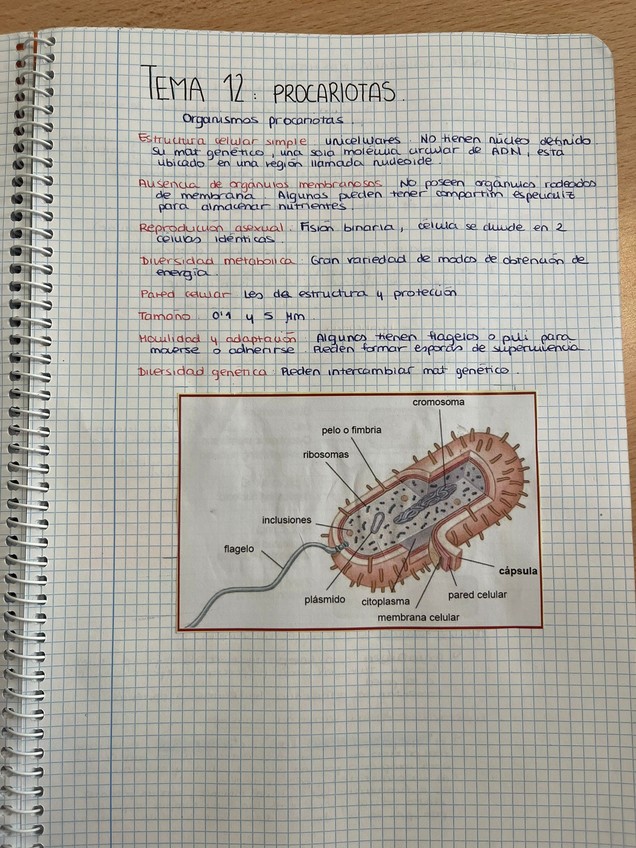 TEMA 12: PROCARIOTAS.
Organismos procariotas.
Estructura celular simple unicelulares. No tienen núcleo definido
su mat genético, una sola molécula circular de ADN, está
ubicado en una región llamada nucleoide
Ausencia de organulos membranosos No poseen orgánulos rodeados
de membrana. Algunos pueden tener compartim especializ
para almacenar nutrientes.
Reproducción asexual. Fisión binaria, célula se divide en 2
células idénticas.
Diversidad metabólica Gran variedad de modos de obtención de
energía.
Pared celular Les da estructura y protección
Tamaño 0'1 y 5 μm
Movilidad y adaptación Algunos tienen flagelos o pili para
moverse o adherirse. Pueden formar esporas de supervivencia
Diversidad genética Pueden intercambiar mat genético.
cromosoma
pelo o fimbria
ribosomas
inclusiones
flagelo
cápsula
plásmido
citoplasma
pared celular
membrana celular